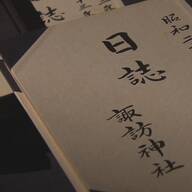 昭和二
日誌
諏訪神社
誌